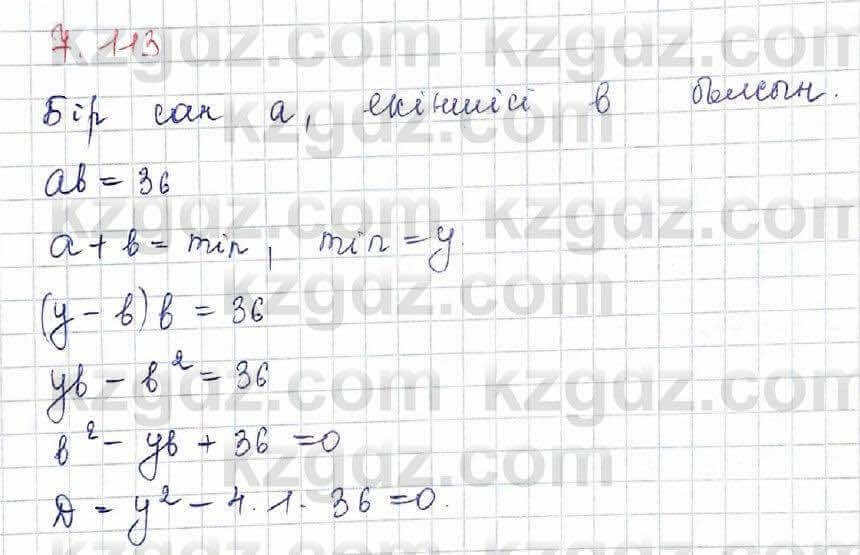 7.113
Бір сан а, екіншісі в болсын.
ав = 36
а + в = min, min = y.
(y - в) в = 36
yв - в² = 36
в² - yв + 36 = 0
D = y² - 4 · 1 · 36 = 0.
kzgdz.com
kzgdz.com
kzgdz.com
kzgdz.com
kzgdz.com
kzgdz.com
kzgdz.com
kzgdz.com
kzgdz.com
kzgdz.com